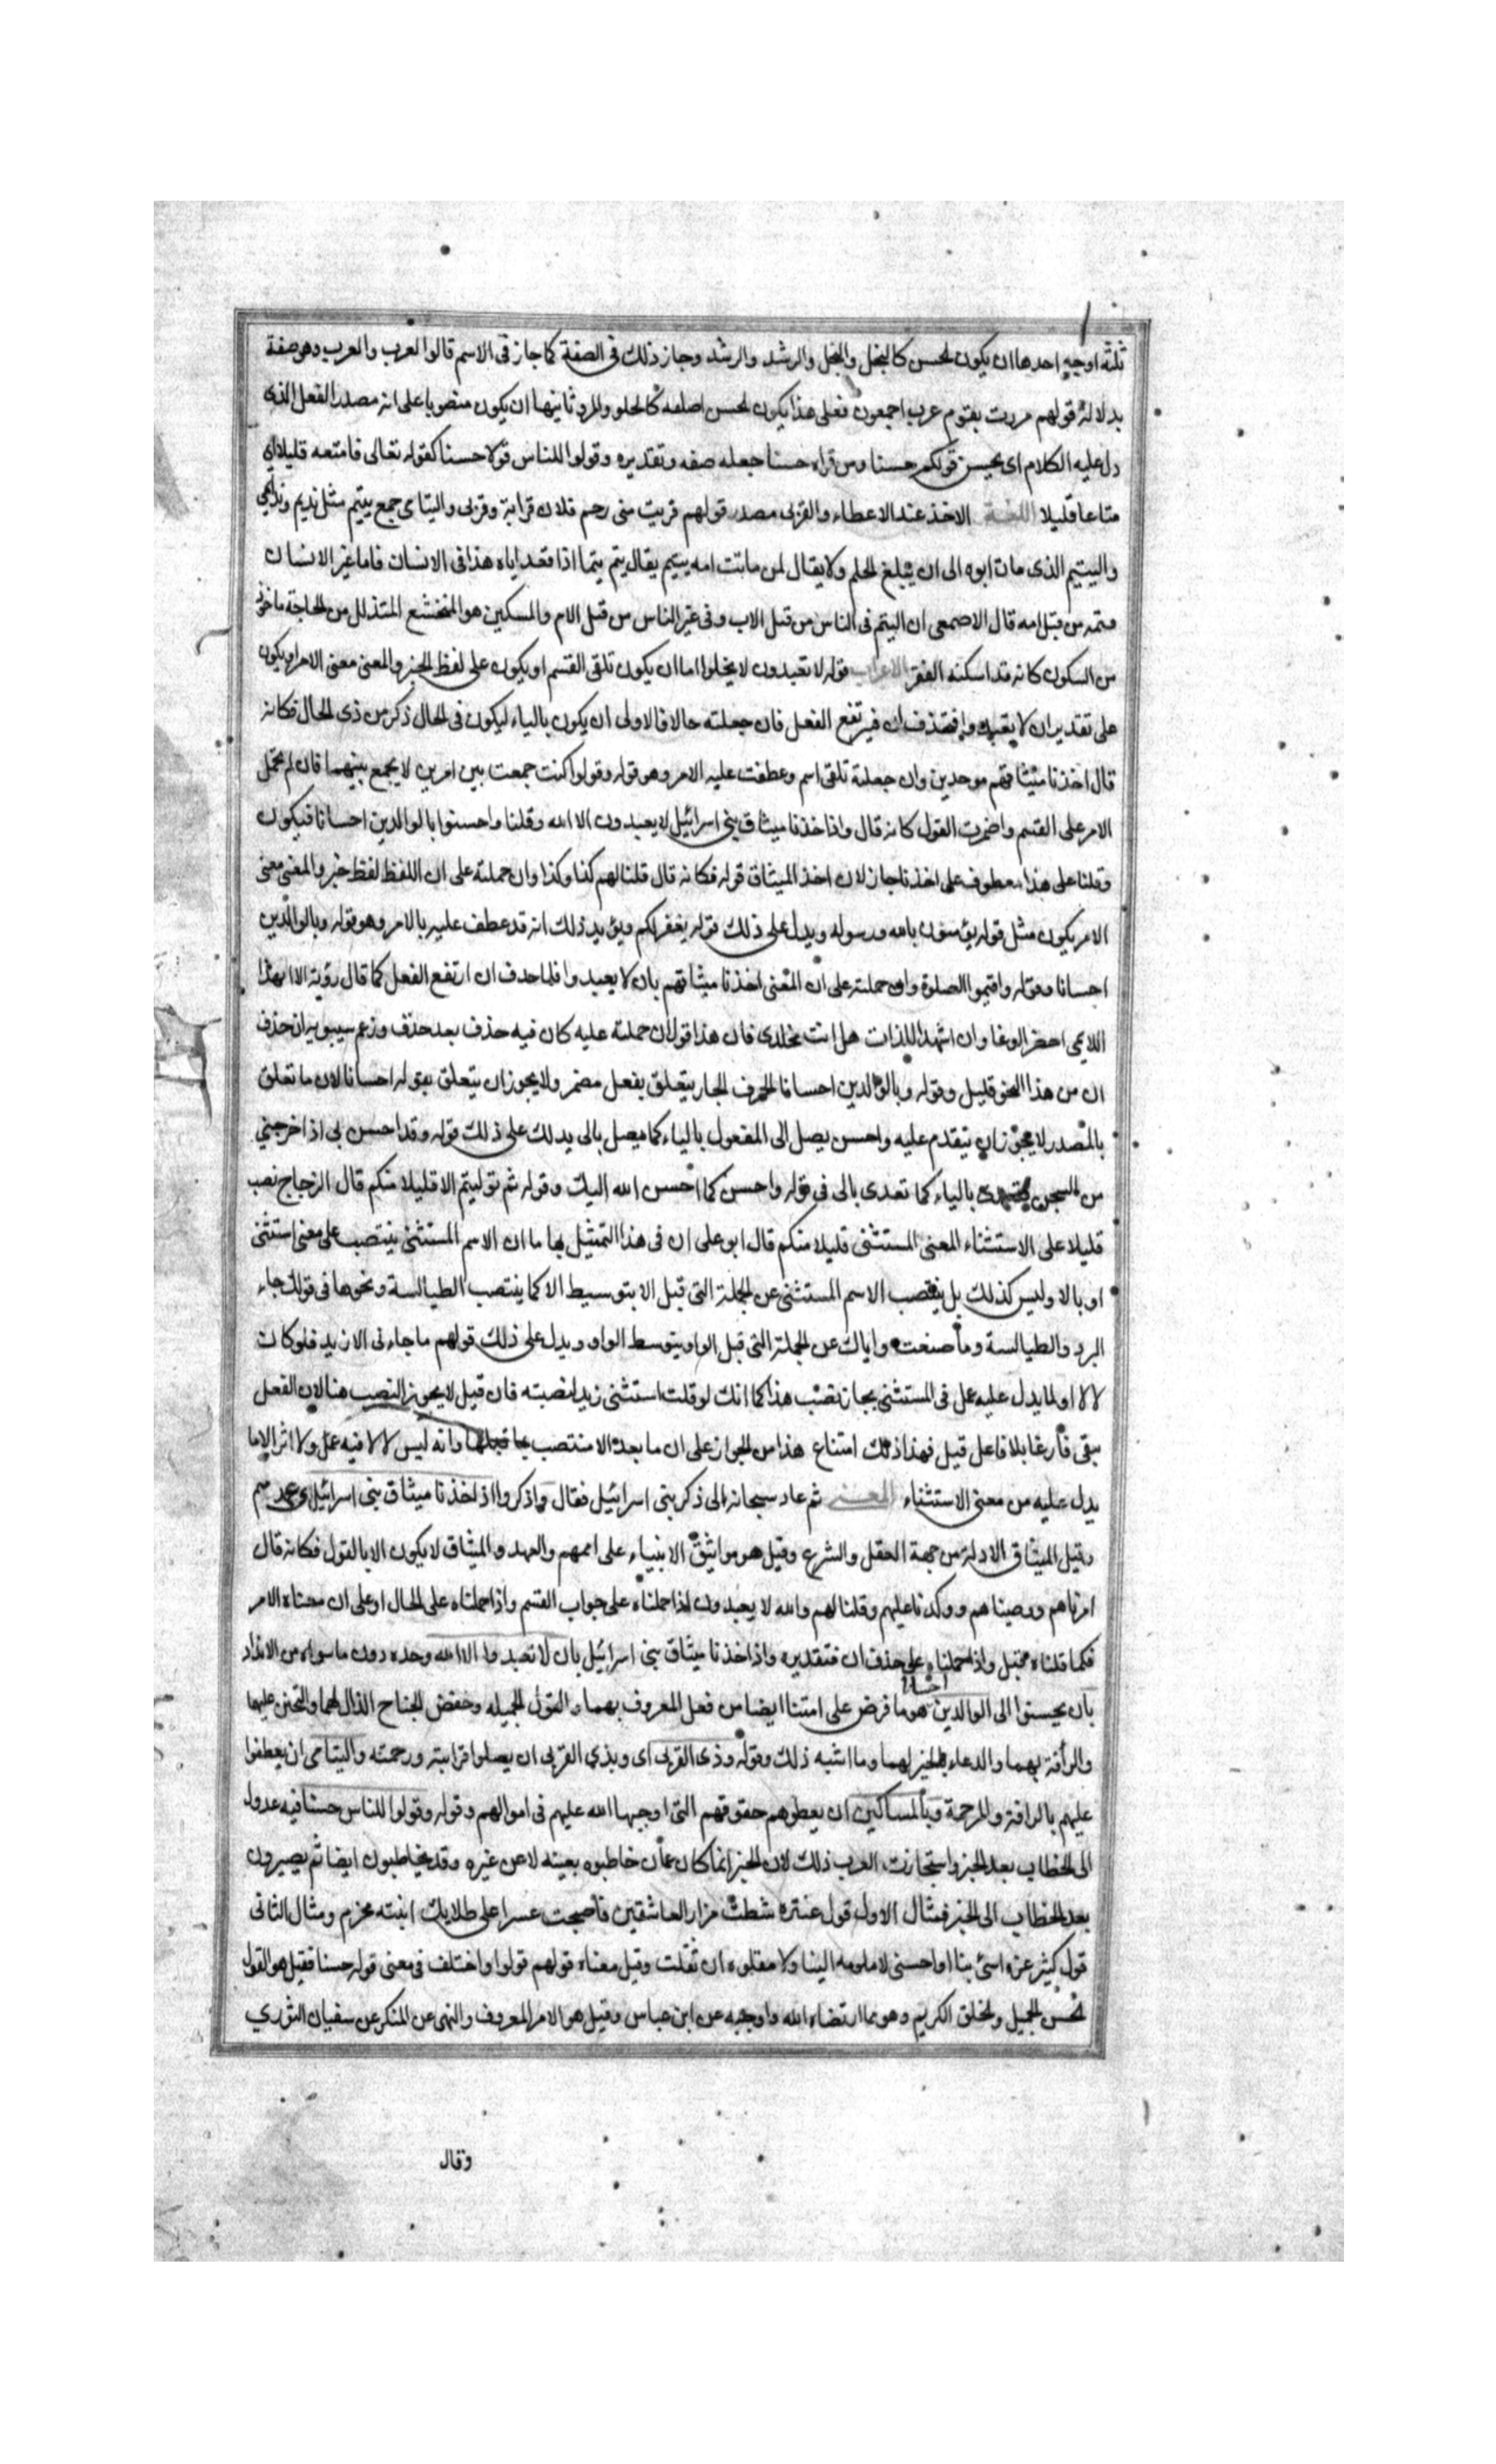 ثلثة اوجه احدها ان يكون الحسن كالبخل والبخل والرشد والرشد وجاز ذلك في الصفة كما جاز في الاسم قالوا لعرب والعرب وهو صفة
بدلالة قولهم مررت بقوم عرب اجمعون فعلى هذا يكون الحسن اصلفه كالحلو والمر وثانيها ان يكون منصوبا على انه مصدر الفعل الذى
دل عليه الكلام اى ليحسن قولكم حسنا ومن قراه حسنا جعله صفه وتقديره وقولوا للناس قولا حسنا كقوله تعالى فامتعه قليلا اى
متاعا قليلا اللغة الاخذ عند الاعطاء والقربى مصدر قولهم قربت منى رحم فلان قرابة وقربى واليتامى جمع يتيم مثل نديم وندامى
واليتيم الذى مات ابوه الى ان يبلغ الحلم ولا يقال لمن ماتت امه يتيم يقال يتم يتما اذا فقد اباه هذا فى الانسان فاما غير الانسان
فيتمه من قبل امه قال الاصمعى ان اليتم فى الناس من قبل الاب وفى غير الناس من قبل الام والمسكين هو المتخشع المتذلل من الحاجة ماخوذ
من السكون كانه قد اسكنه الفقر الاعراب قوله لا تعبدون لا يخلوا اما ان يكون تلقى القسم او يكون على لفظ الخبر والمعنى معنى الامر او يكون
على تقدير ان لا يعبدوا فتحذف ان فيرتفع الفعل فان جعلته حالا فالاولى ان يكون بالياء ليكون فى الحال ذكر من ذى الحال فكانه
قال اخذنا ميثاقهم موحدين وان جعلته تلقى اسم وعطفت عليه الامر وهو قوله وقولوا كنت جمعت بين امرين لا يجمع بينهما فان لم تحمل
الامر على القسم واضمرت القول كانه قال واذ اخذنا ميثاق بنى اسرائيل لا يعبدون الا الله وقلنا واحسنوا بالوالدين احسانا فيكون
وقلنا على هذا معطوف على اخذنا جاز لان اخذ الميثاق قوله فكانه قال قلنا لهم كذا وكذا وان حملته على ان اللفظ لفظ خبر والمعنى معنى
الامر يكون مثل قوله يؤمنون بالله ورسوله ويدل على ذلك قوله يغفر لكم ويؤيد ذلك انه قد عطف عليه بالامر وهو قوله وبالوالدين
احسانا وقوله واقيموا الصلوة وان حملته على ان المعنى اخذنا ميثاقهم بان لا يعبدوا فلما حذف ان ارتفع الفعل كما قال رؤية الا ايهذا
اللايمى احضر الوغا وان اشهد اللذات هل انت مخلدى فان هذا قول ان حملته عليه كان فيه حذف بعد حذف وزعم سيبويه ان حذف
ان من هذا النحو قليل وقوله وبالوالدين احسانا الحرف الجار يتعلق بفعل مضمر ولا يجوز ان يتعلق بقوله احسانا لان ما تعلق
بالمصدر لا يجوز ان يتقدم عليه واحسن يصل الى المفعول بالباء كما يصل بالى يدلك على ذلك قوله وقد احسن بى اذ اخرجنى
من السجن بالباء كما تعدى بالى فى قوله واحسن كما احسن الله اليك وقوله ثم توليتم الا قليلا منكم قال الزجاج نصب
قليلا على الاستثناء المعنى المستثنى قليلا منكم قال ابو على ان فى هذا التمثيل ايهاما ان الاسم المستثنى ينتصب على معنى استثنى
او بالا وليس كذلك بل ينتصب الاسم المستثنى عن الجملة التى قبل الا بتوسيط الا كما ينتصب الطيالسة ونحوها فى قولك جاء
البرد والطيالسة وما صنعت واياك عن الجملة التى قبل الواو بتوسط الواو ويدل على ذلك قولهم ما جاءنى الا زيد فلو كان
لالا او لما يدل عليه عمل فى المستثنى بجاز نصب هذا كما انك لو قلت استثنى زيدا نصبته فان قيل لا يجوز النصب هنا لان الفعل
يبقى فارغا بلا فاعل قيل فهذا ذلك امتناع هذا من الجواز على ان ما بعد الا منتصب بما قبلها وانه ليس لالا فيه عمل ولا اثر الا ما
يدل عليه من معنى الاستثناء المعنى ثم عاد سبحانه الى ذكر بنى اسرائيل فقال واذكروا اذ اخذنا ميثاق بنى اسرائيل اى عهدهم
وقيل الميثاق الادلة من جهة العقل والشرع وقيل هو مواثيق الانبياء على اممهم والعهد والميثاق لا يكون الا بالقول فكانه قال
امرناهم ووصيناهم ووكدنا عليهم وقلنا لهم والله لا يعبدون اذا حملناه على جواب القسم واذا حملناه على الحال او على ان معناه الامر
فكما قلناه قبل واذا حملناه على حذف ان فتقديره واذ اخذنا ميثاق بنى اسرائيل بان لا تعبدوا الا الله وحده دون ما سواه من الانداد
بان يحسنوا الى الوالدين احسانا هو ما فرض على امتنا ايضا من فعل المعروف بهما والقول الجميله وخفض الجناح الذل لهما والتحنن عليهما
والرأفة بهما والدعاء بالخير لهما وما اشبه ذلك وقوله وذى القربى اى وبذى القربى ان يصلوا قرابته ورحمته واليتامى ان يعطفوا
عليهم بالرافة والرحمة وبالمساكين ان يعطوهم حقوقهم التى اوجبها الله عليهم فى اموالهم وقوله وقولوا للناس حسنا فيه عدول
الى الخطاب بعد الخبر واستجازت العرب ذلك لان الخبر انما كان عمان خاطبوه بعينه لا عن غيره وقد يخاطبون ايضا ثم يصيرون
بعد الخطاب الى الخبر فمثال الاول قول عنتره شطت مزار العاشقين فاصبحت عسرا على طلابك ابنته مخرم ومثال الثانى
قول كثير عزه اسئ بنا او احسنى لا ملومه الينا ولا مقلوه ان تقلت وقيل معناه قولهم قولوا واختلف فى معنى قوله حسنا فقيل هو القول
الحسن الجميل والخلق الكريم وهو مما ارتضاه الله واوجبه عن ابن عباس وقيل هو الامر المعروف والنهى عن المنكر عن سفيان الثورى
وقال